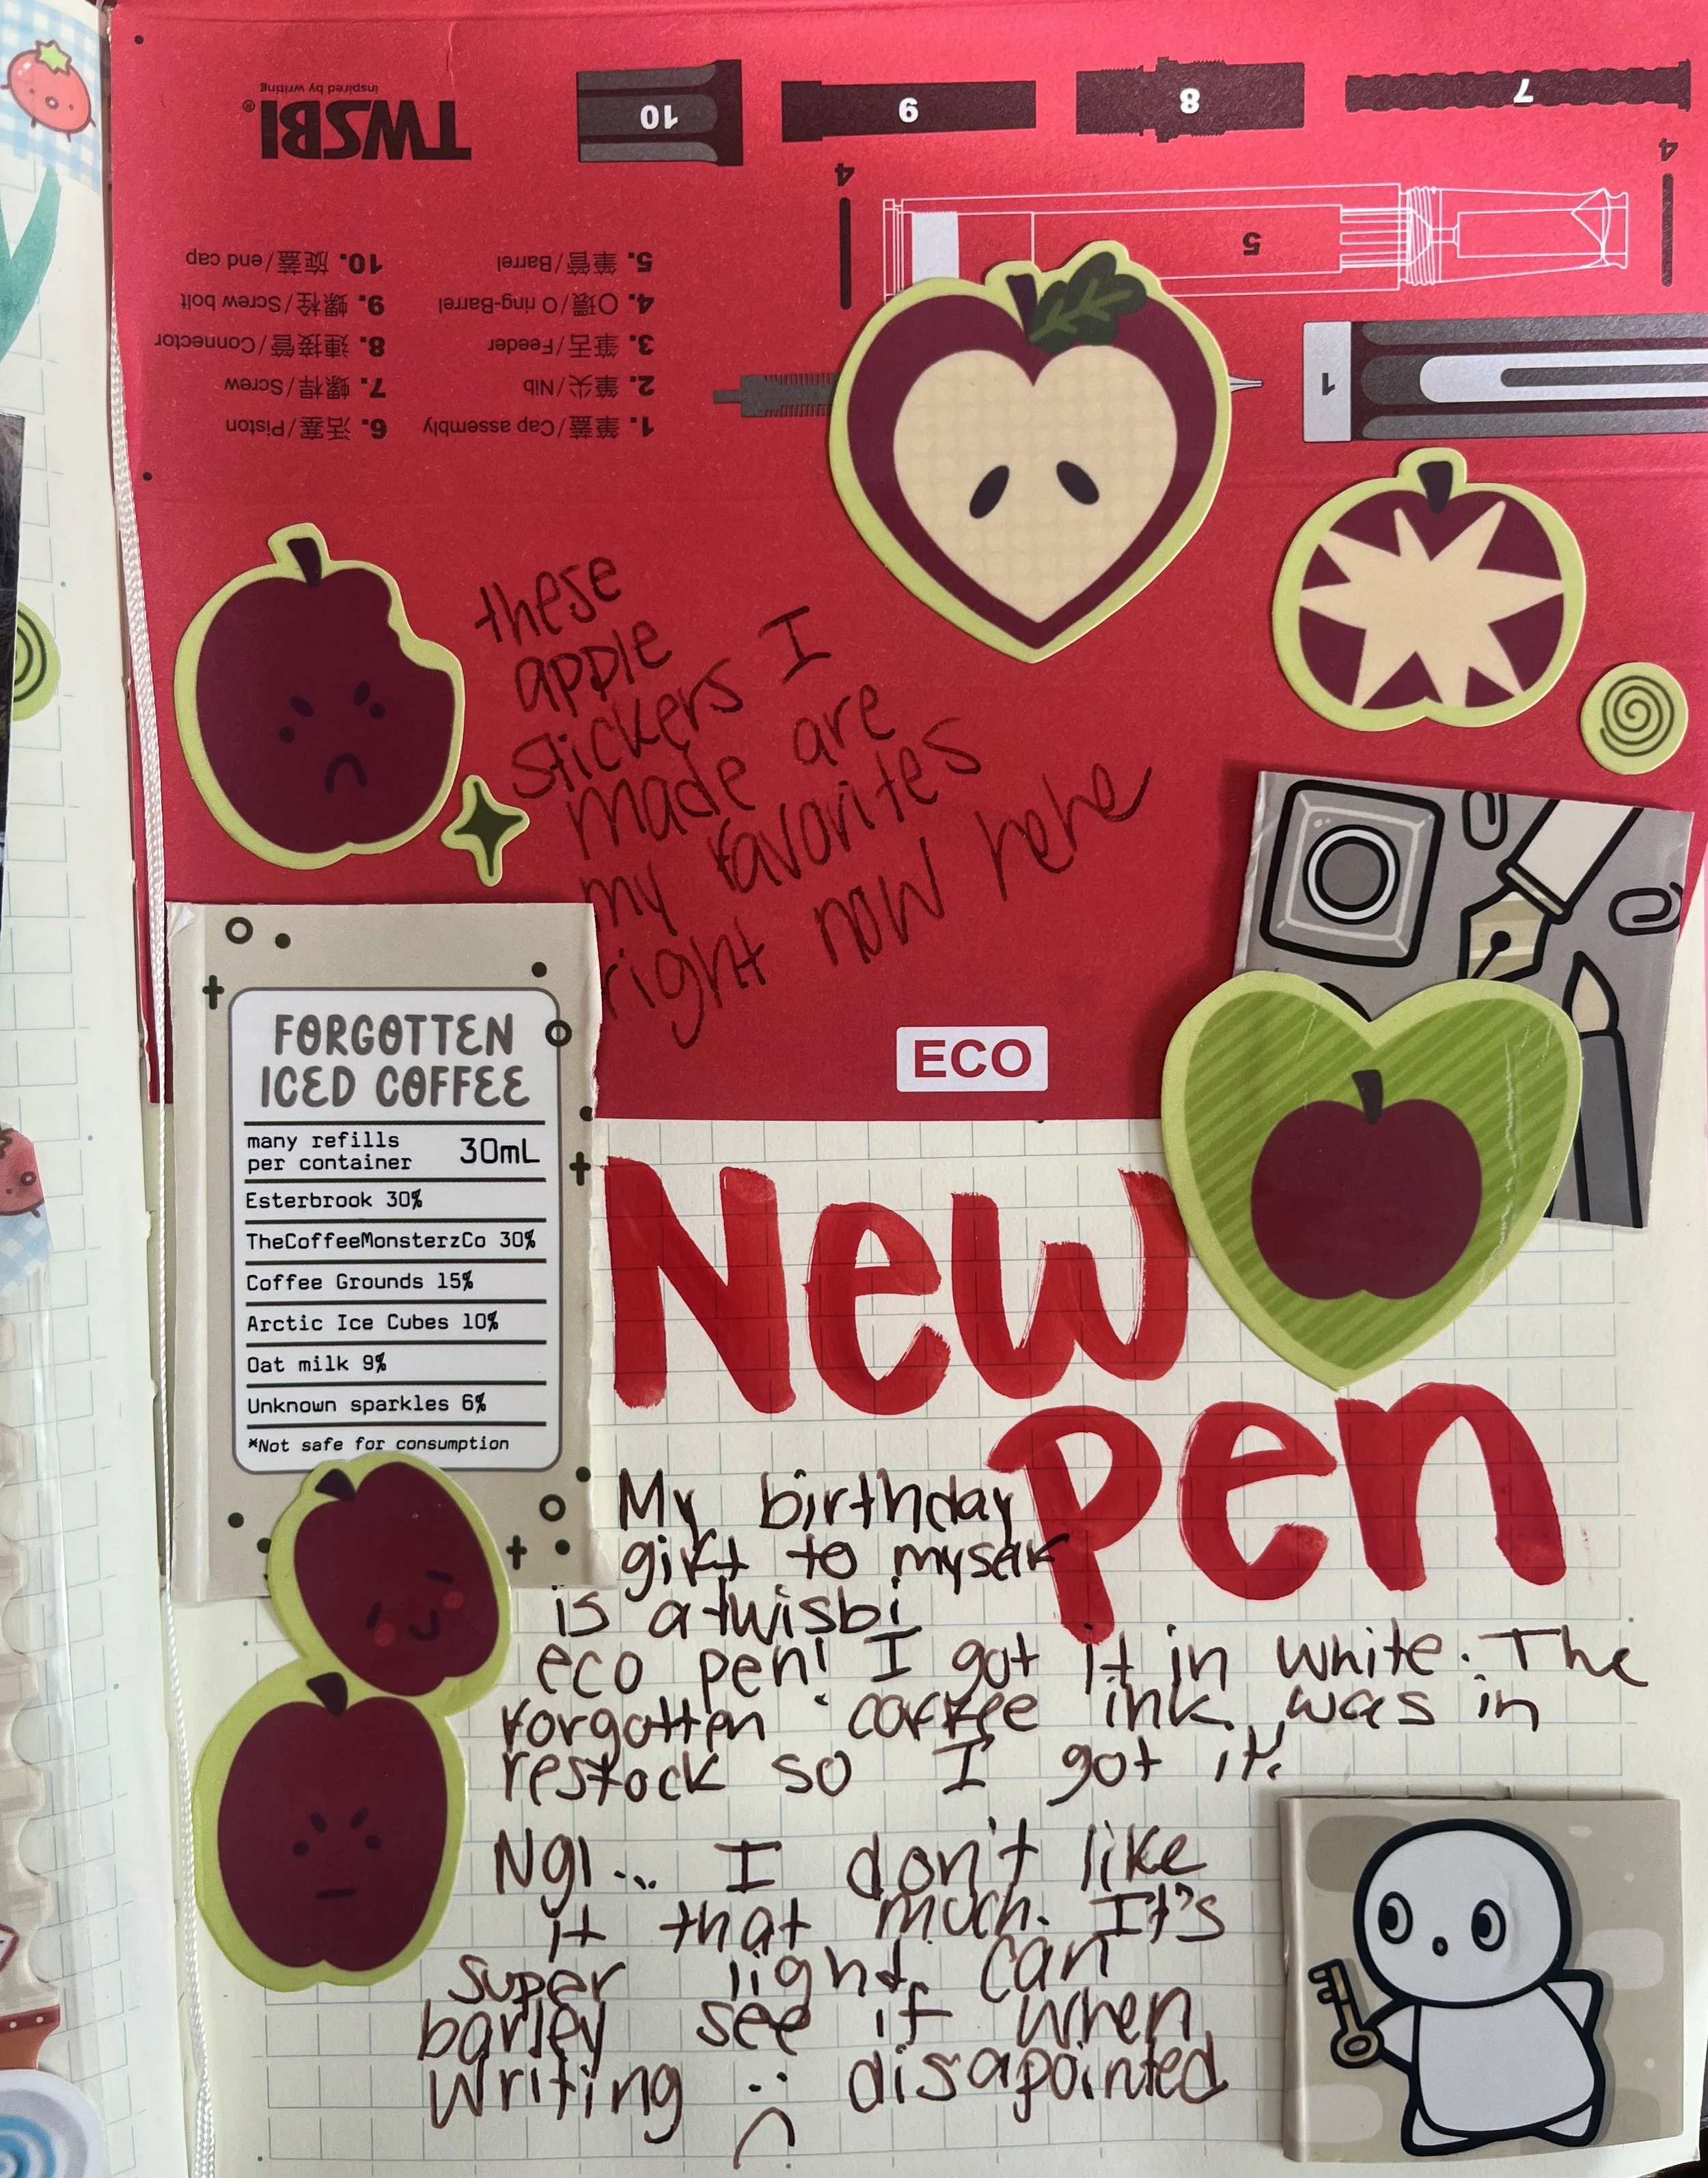 TWSBI®
inspired by writing
10
9
8
7
4
4
5
1
1. 筆蓋/Cap assembly
2. 筆尖/Nib
3. 筆舌/Feeder
4. O環/O ring-Barrel
5. 筆管/Barrel
6. 活塞/Piston
7. 螺桿/Screw
8. 連接管/Connector
9. 螺栓/Screw bolt
10. 旋蓋/end cap
these
apple
stickers I
made are
my favorites
right now hehe
ECO
FORGOTTEN
ICED COFFEE
many refills
per container 30mL
Esterbrook 30%
TheCoffeeMonsterzCo 30%
Coffee Grounds 15%
Arctic Ice Cubes 10%
Oat milk 9%
Unknown sparkles 6%
*Not safe for consumption
New
Pen
My birthday
gift to myself
is a twisbi
eco pen! I got it in white. The
forgotten coffee ink was in
restock so I got it.
Ngl... I don't like
it that much. It's
super light. Can
barley see it when
writing :( disapointed